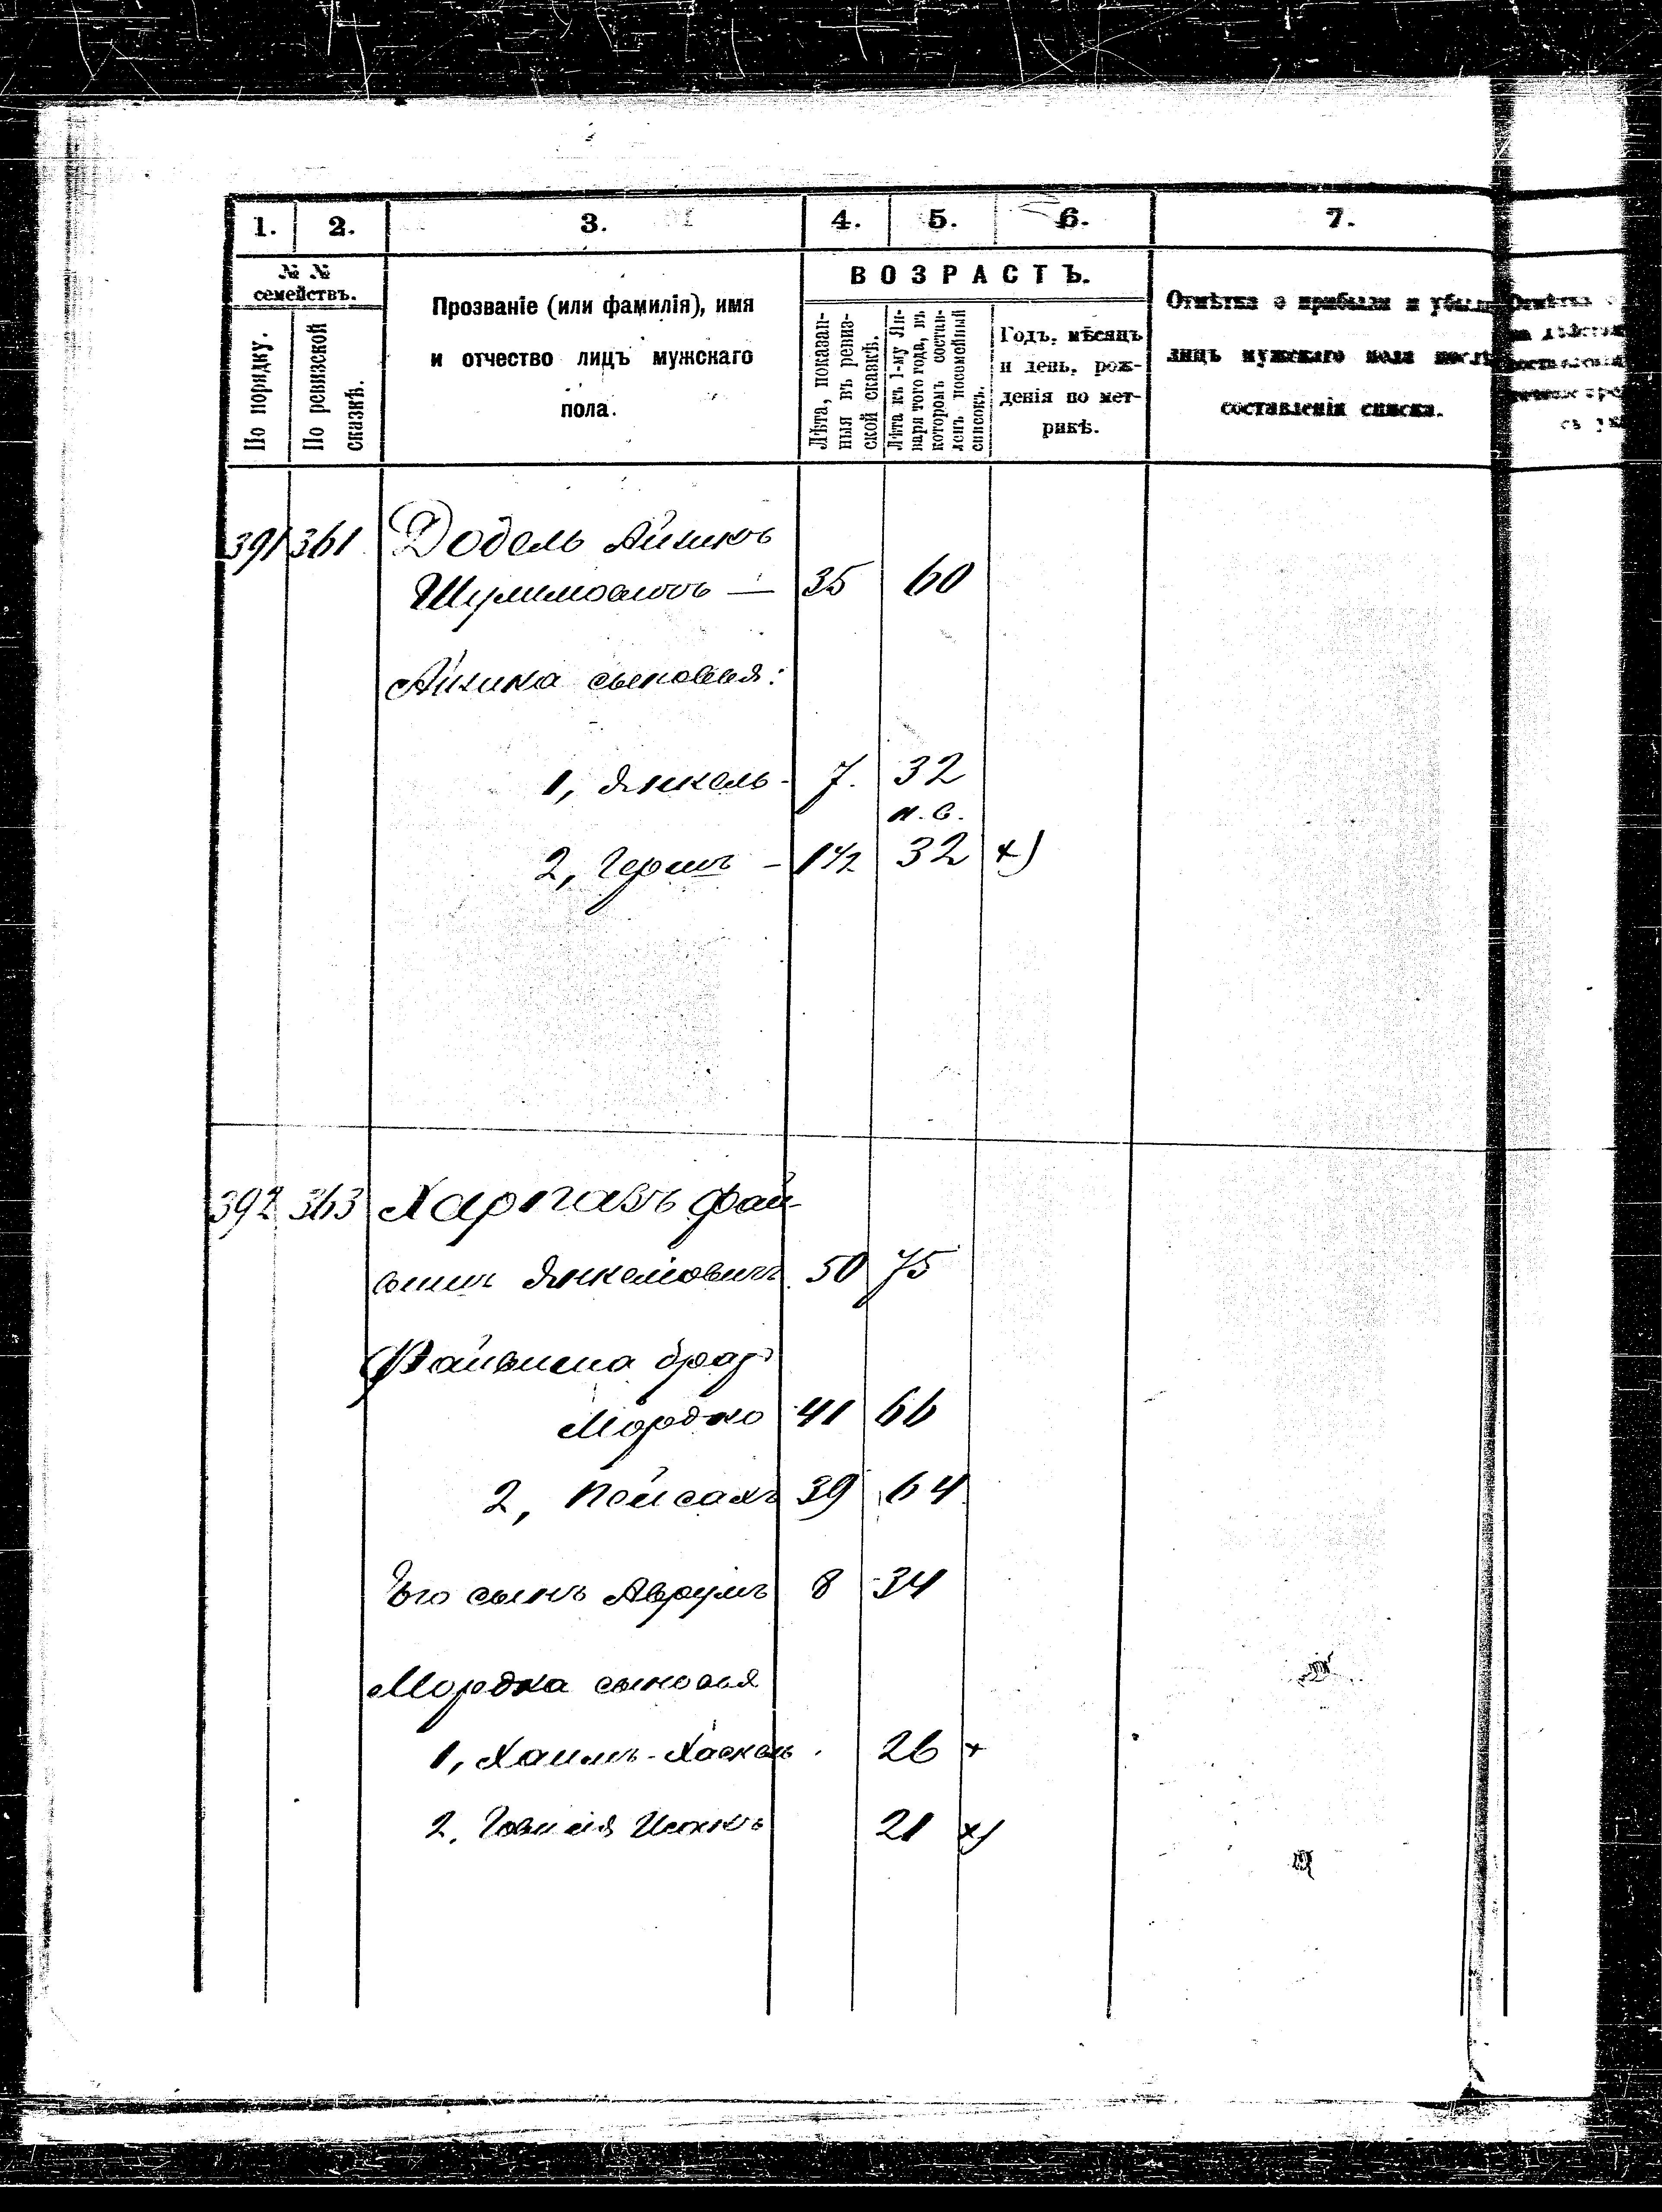 1. 2. 3. 4. 5. 6. 7.
№ №
семействъ.
По порядку.
По ревизской
сказкѣ.
Прозваніе (или фамилія), имя
и отчество лицъ мужскаго
пола.
ВОЗРАСТЪ.
Лѣта, показан-
ныя въ ревиз-
ской сказкѣ.
Лѣта къ 1-му Ян-
варя того года, въ
которомъ состав-
ленъ посемейный
списокъ.
Годъ, мѣсяцъ
и день, рож-
денія по мет-
рикѣ.
Отмѣтка о прибыли и убыли
лицъ мужскаго пола послѣ
составленія списка.
Отмѣтка
391 361 Додель Айзикъ
Шулимовичъ — 35 60
Айзика сыновья:
1, Янкель - 7. 32
н. в.
2, Гершъ - 1 1/2 32 х)
392 363 Харгавъ Фай-
вишъ Янкеліовичъ 50 75
Файвиша брат
Мордко 41 66
2, Пейсахъ 39 64
Его сынъ Аврумъ 8 34
Мордка сыновья
1, Хаимъ-Хаскель 26 х
2, Ицикъ 21 х)